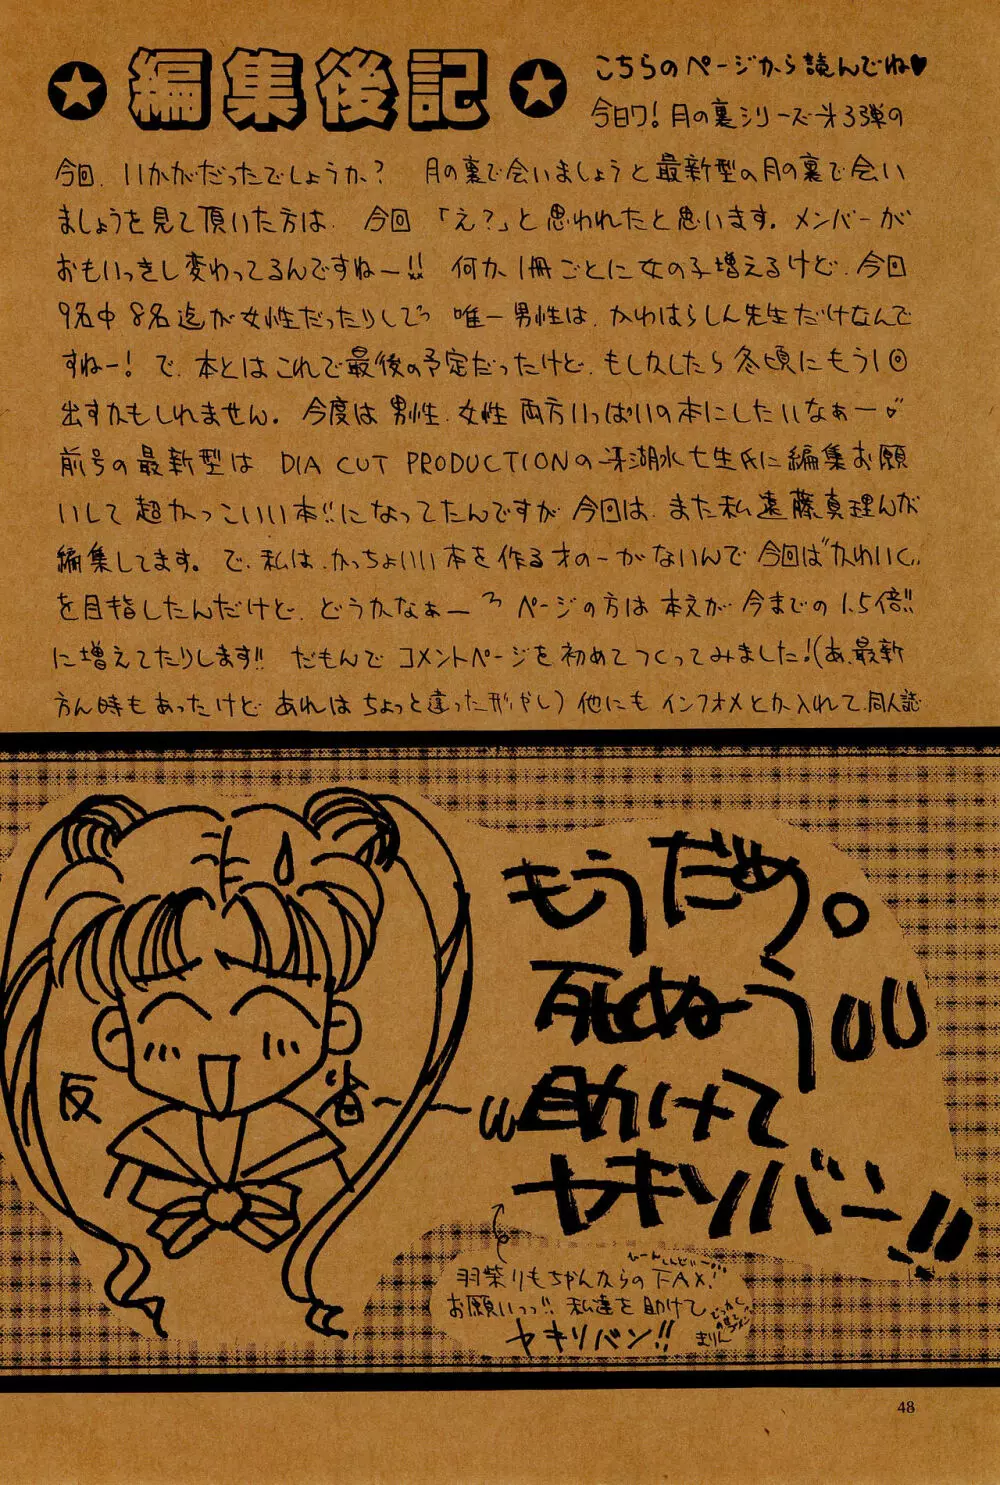 編集後記
こちらのページから読んでね♥
今日ワ!月の裏シリーズ才3弾の
今回、いかがだったでしょうか? 月の裏で会いましょうと最新型の月の裏で会い
ましょうを見て頂いた方は、今回「え?」と思われたと思います。メンバーが
おもいっきし変わってるんですねー!! 何か1冊ごとに女の子増えるけど、今回
9名中8名迄が女性だったりしてっ 唯一男性は、かわはらしん先生だけなんで
すねー!で、本とはこれで最後の予定だったけど、もしかしたら冬頃にもう1回
出すかもしれません。今度は男性、女性両方いっぱいの本にしたいなぁー
前号の最新型は DIA CUT PRODUCTIONの 湖水七生氏に編集お願
いして超かっこいい本!!になってたんですが今回は、また私遠藤真理んが
編集してます。で、私は、かっちょいい本を作る才のーがないんで今回は"かわいく"
を目指したんだけど、どうかなぁーっ ページの方は本文が今までの1.5倍!!
に増えてたりします!! だもんでコメントページを初めてつくってみました!(あ、最新
方ん時もあったけど あれはちょっと違った形やし)他にもインフォメとか入れて、同人誌
反
省〜〜
もうだめ。
死ぬう
助けて
ヤキソバン!!
羽柴りもちゃんからのFAX!
お願いっっ!! 私達を助けて
ヤキソバン!!
まりん
48